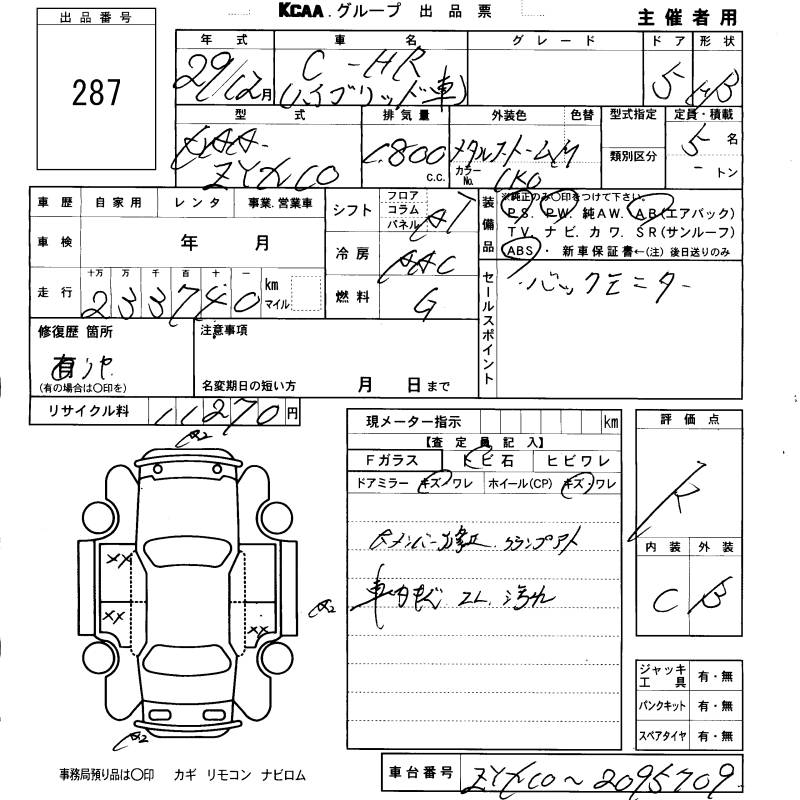 KCAA.グループ 出品票
主催者用
出品番号
287
年式 車名 グレード ドア 形状
29/12月 C-HR 5 HB
(ハイブリッド車)
型式 排気量 外装色 色替 型式指定 定員・積載
DAA- 1.800 メタルストームM 5名
ZYX10 c.c. カラーNo. 1K0 類別区分 -トン
車歴 自家用 レンタ 事業.営業車
車検 年 月
走行 十万 万 千 百 十 一 km マイル
233740
シフト フロア コラム パネル AT
冷房 AAC
燃料 G
装備品 ※純正のみ〇印をつけて下さい。
PS. PW. 純AW. AB(エアバック)
TV. ナビ. カワ. SR(サンルーフ)
ABS ・ 新車保証書←(注) 後日送りのみ
セールスポイント
・バックモニター
修復歴 箇所
有
(有の場合は〇印を)
注意事項
名変期日の短い方 月 日まで
リサイクル料 11270円
現メーター指示 km
【査定員記入】
Fガラス トビ石 ヒビワレ
ドアミラー キズ/ワレ ホイール(CP) キズ/ワレ
クランプアト
車内 汚れ
評価点
R
内装 外装
C B
A2
XX
XX
XX
A2
A2
ジャッキ工具 有・無
パンクキット 有・無
スペアタイヤ 有・無
事務局預り品は〇印 カギ リモコン ナビロム
車台番号 ZYX10～2095709